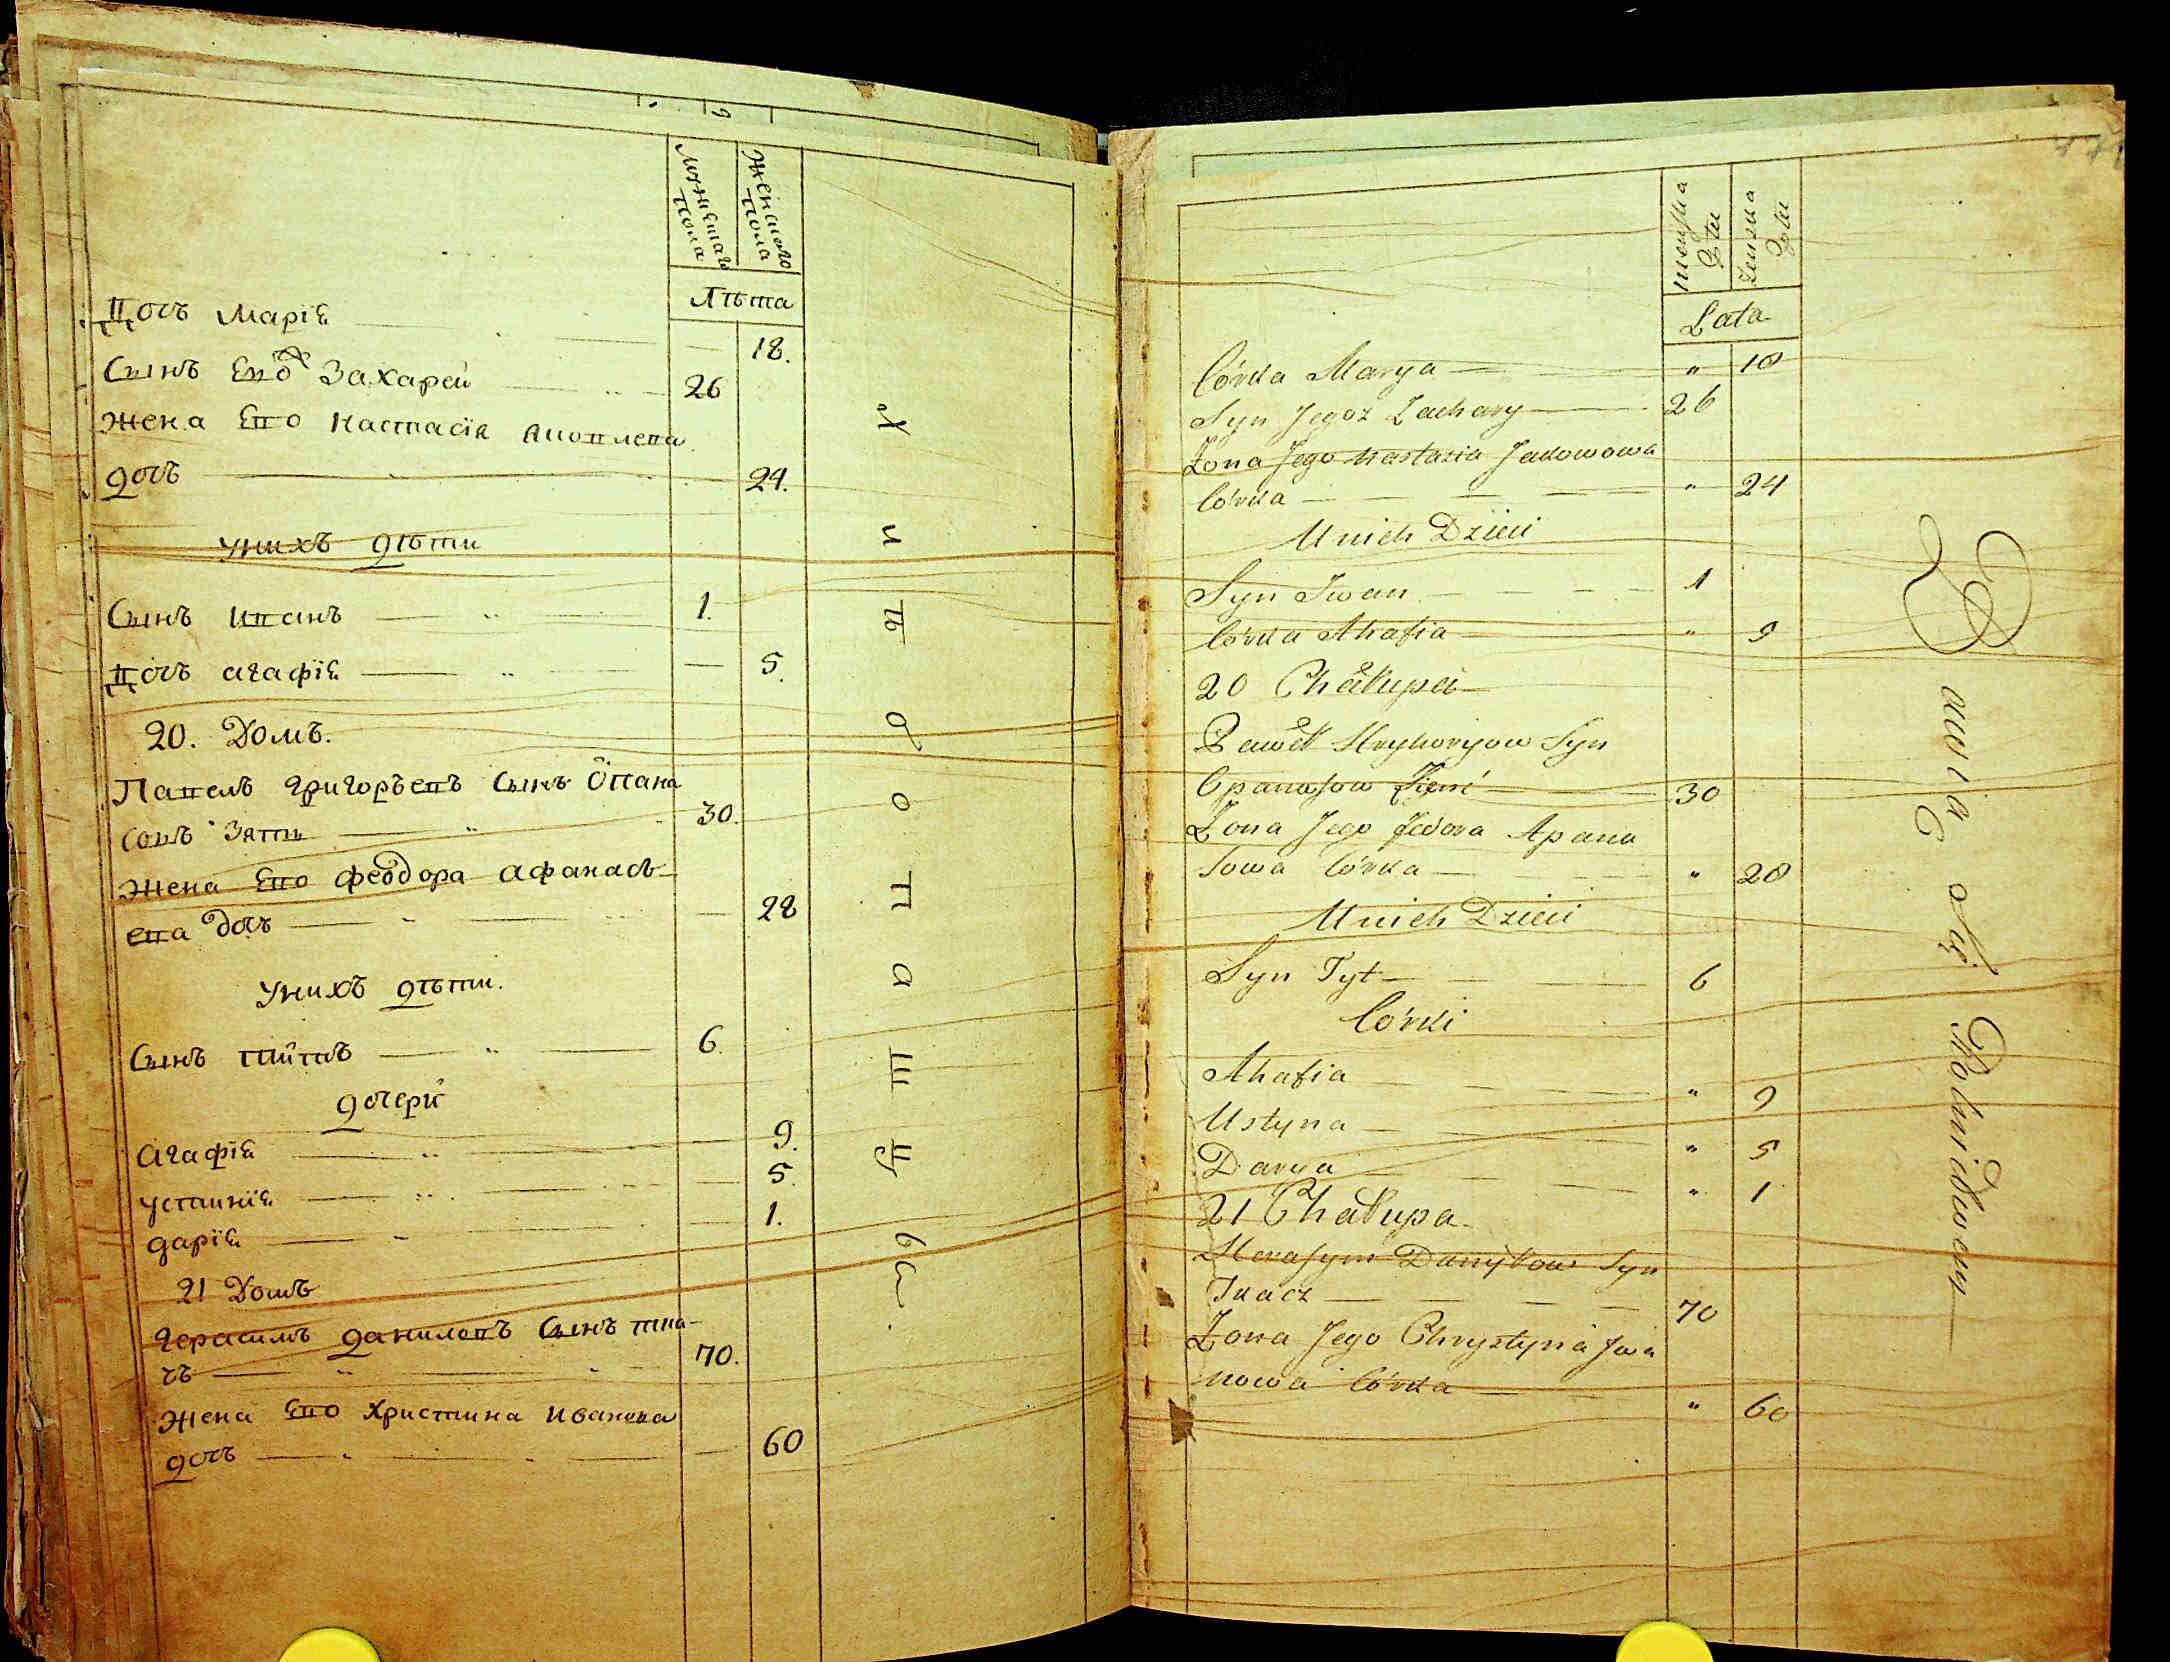 Мужескаго пола
Женскаго пола
Лѣта
Дочъ Маріѧ — 18.
Сынъ Его Захарей — 26
Жена Его Настасія Яковлева
дочъ — 24.
Унихъ дѣти
Сынъ Иванъ — 1.
Дочъ Агафіѧ — 5.
20. Домъ.
Павелъ Григорьевъ Сынъ Опана
совъ Зять — 30.
Жена Его Феодора Афанась
ева дочъ — 28
Унихъ дѣти.
Сынъ Титъ — 6.
дочери
Агафіѧ — 9.
Устиніѧ — 5.
Даріѧ — 1.
21 Домъ
Герасимъ Даниловъ Сынъ тка-
чъ — 70.
Жена Его Христина Иванова
дочъ — 60
Męska
Płeć
Żeńska
Płeć
Lata
Córka Marya — " 18
Syn Jegoż Zachary — 26
Żona Jego Nastazia Jakowowa
Córka — " 24
U nich Dzieci
Syn Iwan — 1
Córka Ahafia — " 5
20 Chałupa
Paweł Hryhoryow Syn
Opanasow Zięć — 30
Żona Jego Fedora Apana
sowa Córka — " 28
U nich Dzieci
Syn Tyt — 6
Córki
Ahafia — " 9
Ustyna — " 5
Darya — " 1
21 Chałupa
Herasym Daniłow Syn
Tkacz — 70
Żona Jego Chrystyna Iwa
nowa Córka — " 60